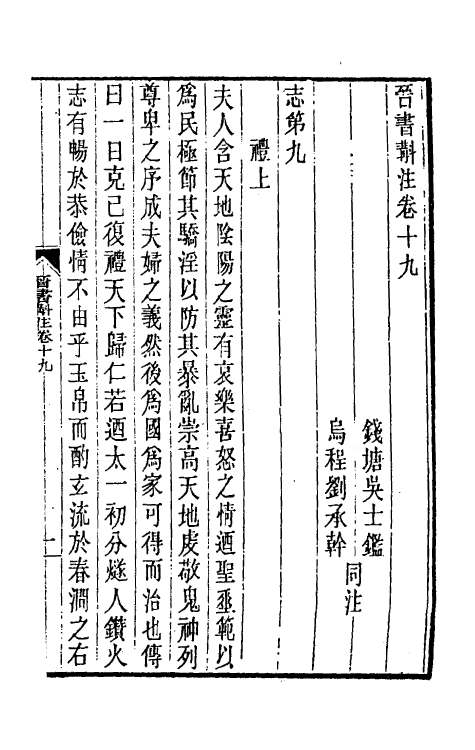 晉書斠注卷十九
錢塘吳士鑑
烏程劉承幹
同注
志第九
禮上
夫人含天地陰陽之靈有哀樂喜怒之情迺聖垂範以
爲民極節其驕淫以防其暴亂崇高天地虔敬鬼神列
尊卑之序成夫婦之義然後爲國爲家可得而治也傳
曰一日克己復禮天下歸仁若迺太一初分燧人鑽火
志有暢於恭儉情不由乎玉帛而酌玄流於春澗之右
晉書斠注卷十九
一